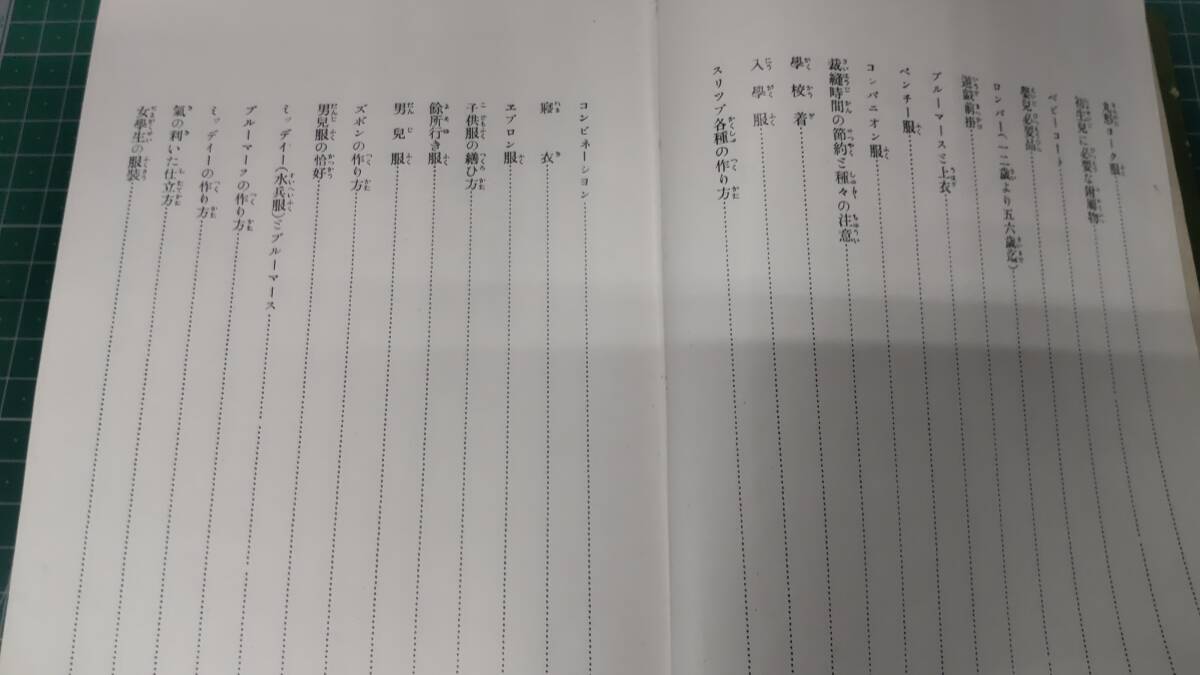 丸形ヨーク服
初生兒に必要な附屬物
ベビーコート
嬰兒必要品
ロンパー(一二歳より五六歳迄)
遊戯前掛
ブルーマースと上衣
ペンチー服
コンパニオン服
裁縫時間の節約と種々の注意
學校着
入學服
スリップ各種の作り方
コンビネーション
寢衣
エプロン服
子供服の繕ひ方
餘所行き服
男兒服
ズボンの作り方
男兒服の恰好
ミッデイー(水兵服)とブルーマース
ブルーマースの作り方
ミッデイーの作り方
氣の利いた仕立方
女學生の服裝